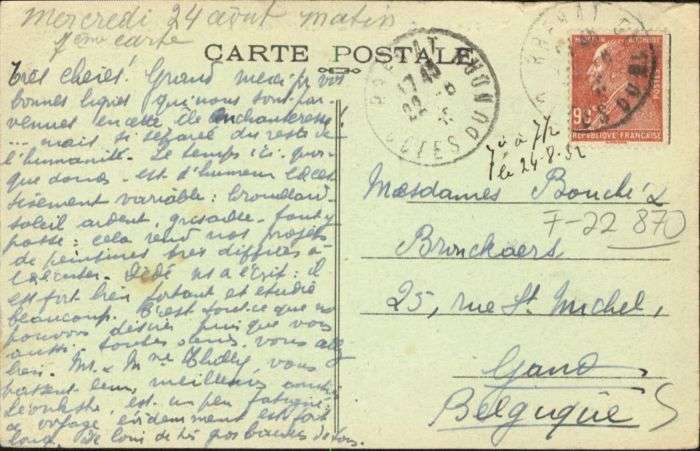 Mercredi 24 août matin
1ème carte
CARTE POSTALE
Très chères! Grand merci pr vos
bonnes lignes qui nous sont par-
venues en cette île enchanteresse
... mais si séparée du reste de
l'humanité. Le temps ici quoi-
que doux est d'humeur exces-
sivement variable: brouillard
soleil ardent, grisaille - tout y
passe: cela rend nos projets
de peintures très difficiles à
exécuter. Dédé ns a écrit: il
est fort bien portant et étudie
beaucoup. C'est tout ce que ns
pouvons désirer puisque vous
aussi toutes deux, vous allez
bien. Mr & Mme Thilly, vous
envoient leurs meilleures amitiés
est un peu fatigué
ce voyage évidemment est fort
long. De loin de très gros baisers de tous.
BREHAT
COTES DU NORD
17 45
22 - 8
90
REPUBLIQUE FRANÇAISE
7h à 7 1/2
le 24-8-32
Mesdames Bouché &
7-22 870
Bronckaers
25, rue St Michel,
Gand
Belgique S